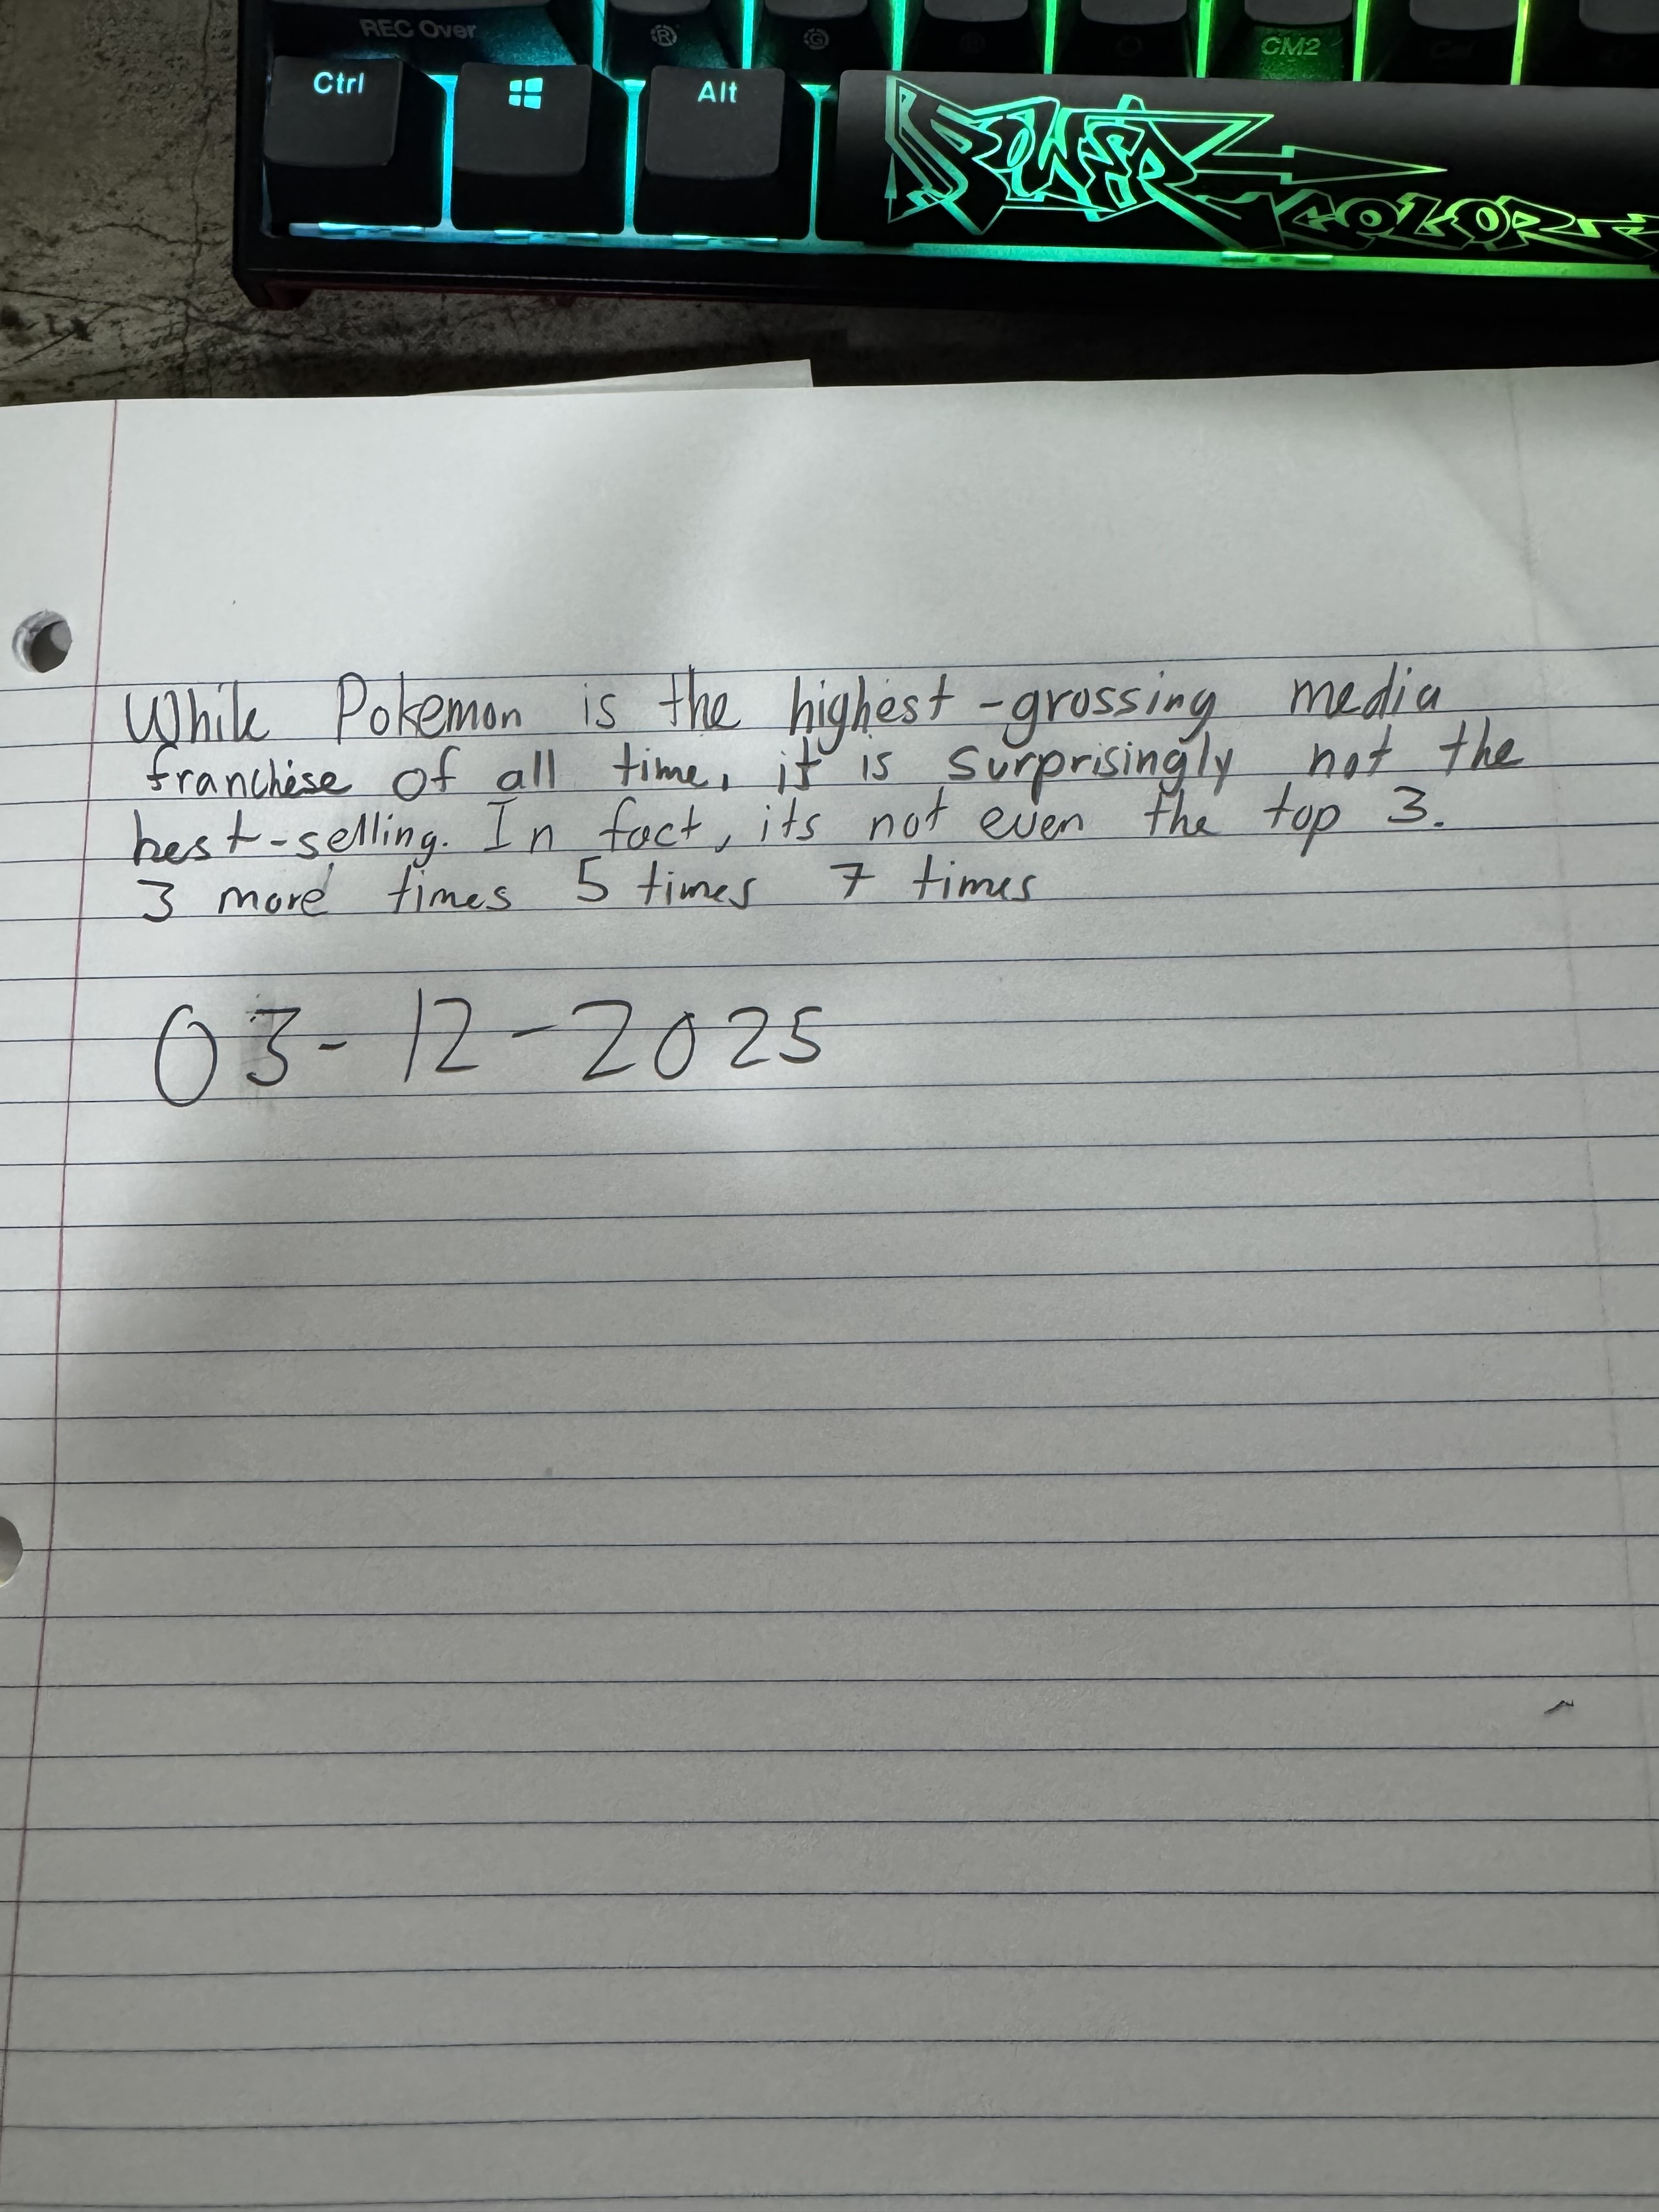 REC Over
CM2
Ctrl
Alt
POWER
COLOR
While Pokemon is the highest-grossing media
franchise of all time, it is surprisingly not the
best-selling. In fact, its not even the top 3.
3 more times 5 times 7 times
03-12-2025